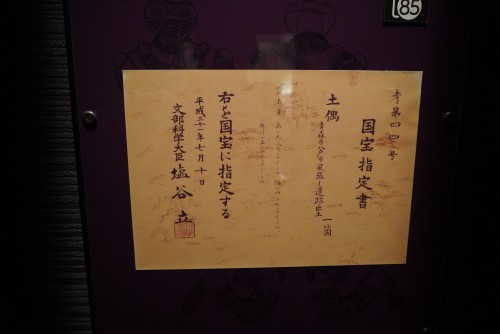 考第四四号
国宝指定書
土偶
青森県八戸市風張1遺跡出土
一箇
右を国宝に指定する
平成二十一年七月十日
文部科学大臣 塩谷 立
185